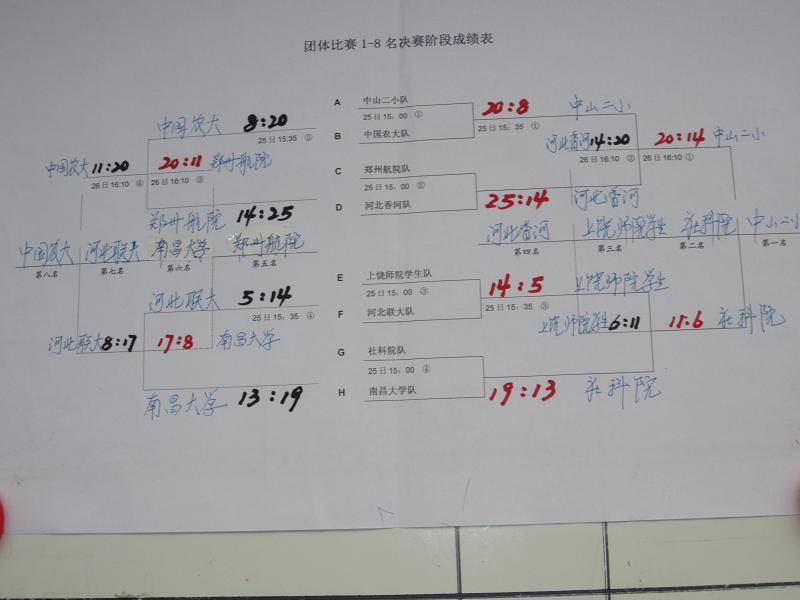 团体比赛 1-8 名决赛阶段成绩表
A 中山二小队
20:8 中山二小
中国农大 8:20
25 日 15:00 ①
25 日 15:35 ②
25 日 15:35 ①
B 中国农大队
河北香河 14:20
20:14 中山二小
中国农大 11:20
20:11 郑州航院
26 日 16:10 ②
26 日 16:10 ①
C 郑州航院队
26 日 16:10 ④
26 日 16:10 ③
25 日 15:00 ②
25:14 河北香河
D 河北香河队
郑州航院 14:25
中国农大 河北联大 南昌大学 郑州航院
河北香河 上饶师院学生 社科院 中山二小
第八名 第七名 第六名 第五名
第四名 第三名 第二名 第一名
E 上饶师院学生队
14:5 上饶师院学生
河北联大 5:14
25 日 15:00 ③
25 日 15:35 ④
25 日 15:35 ③
F 河北联大队
上饶师院学生 6:11
11:6 社科院
河北联大 8:17
17:8 南昌大学
G 社科院队
25 日 15:00 ④
H 南昌大学队
19:13 社科院
南昌大学 13:19